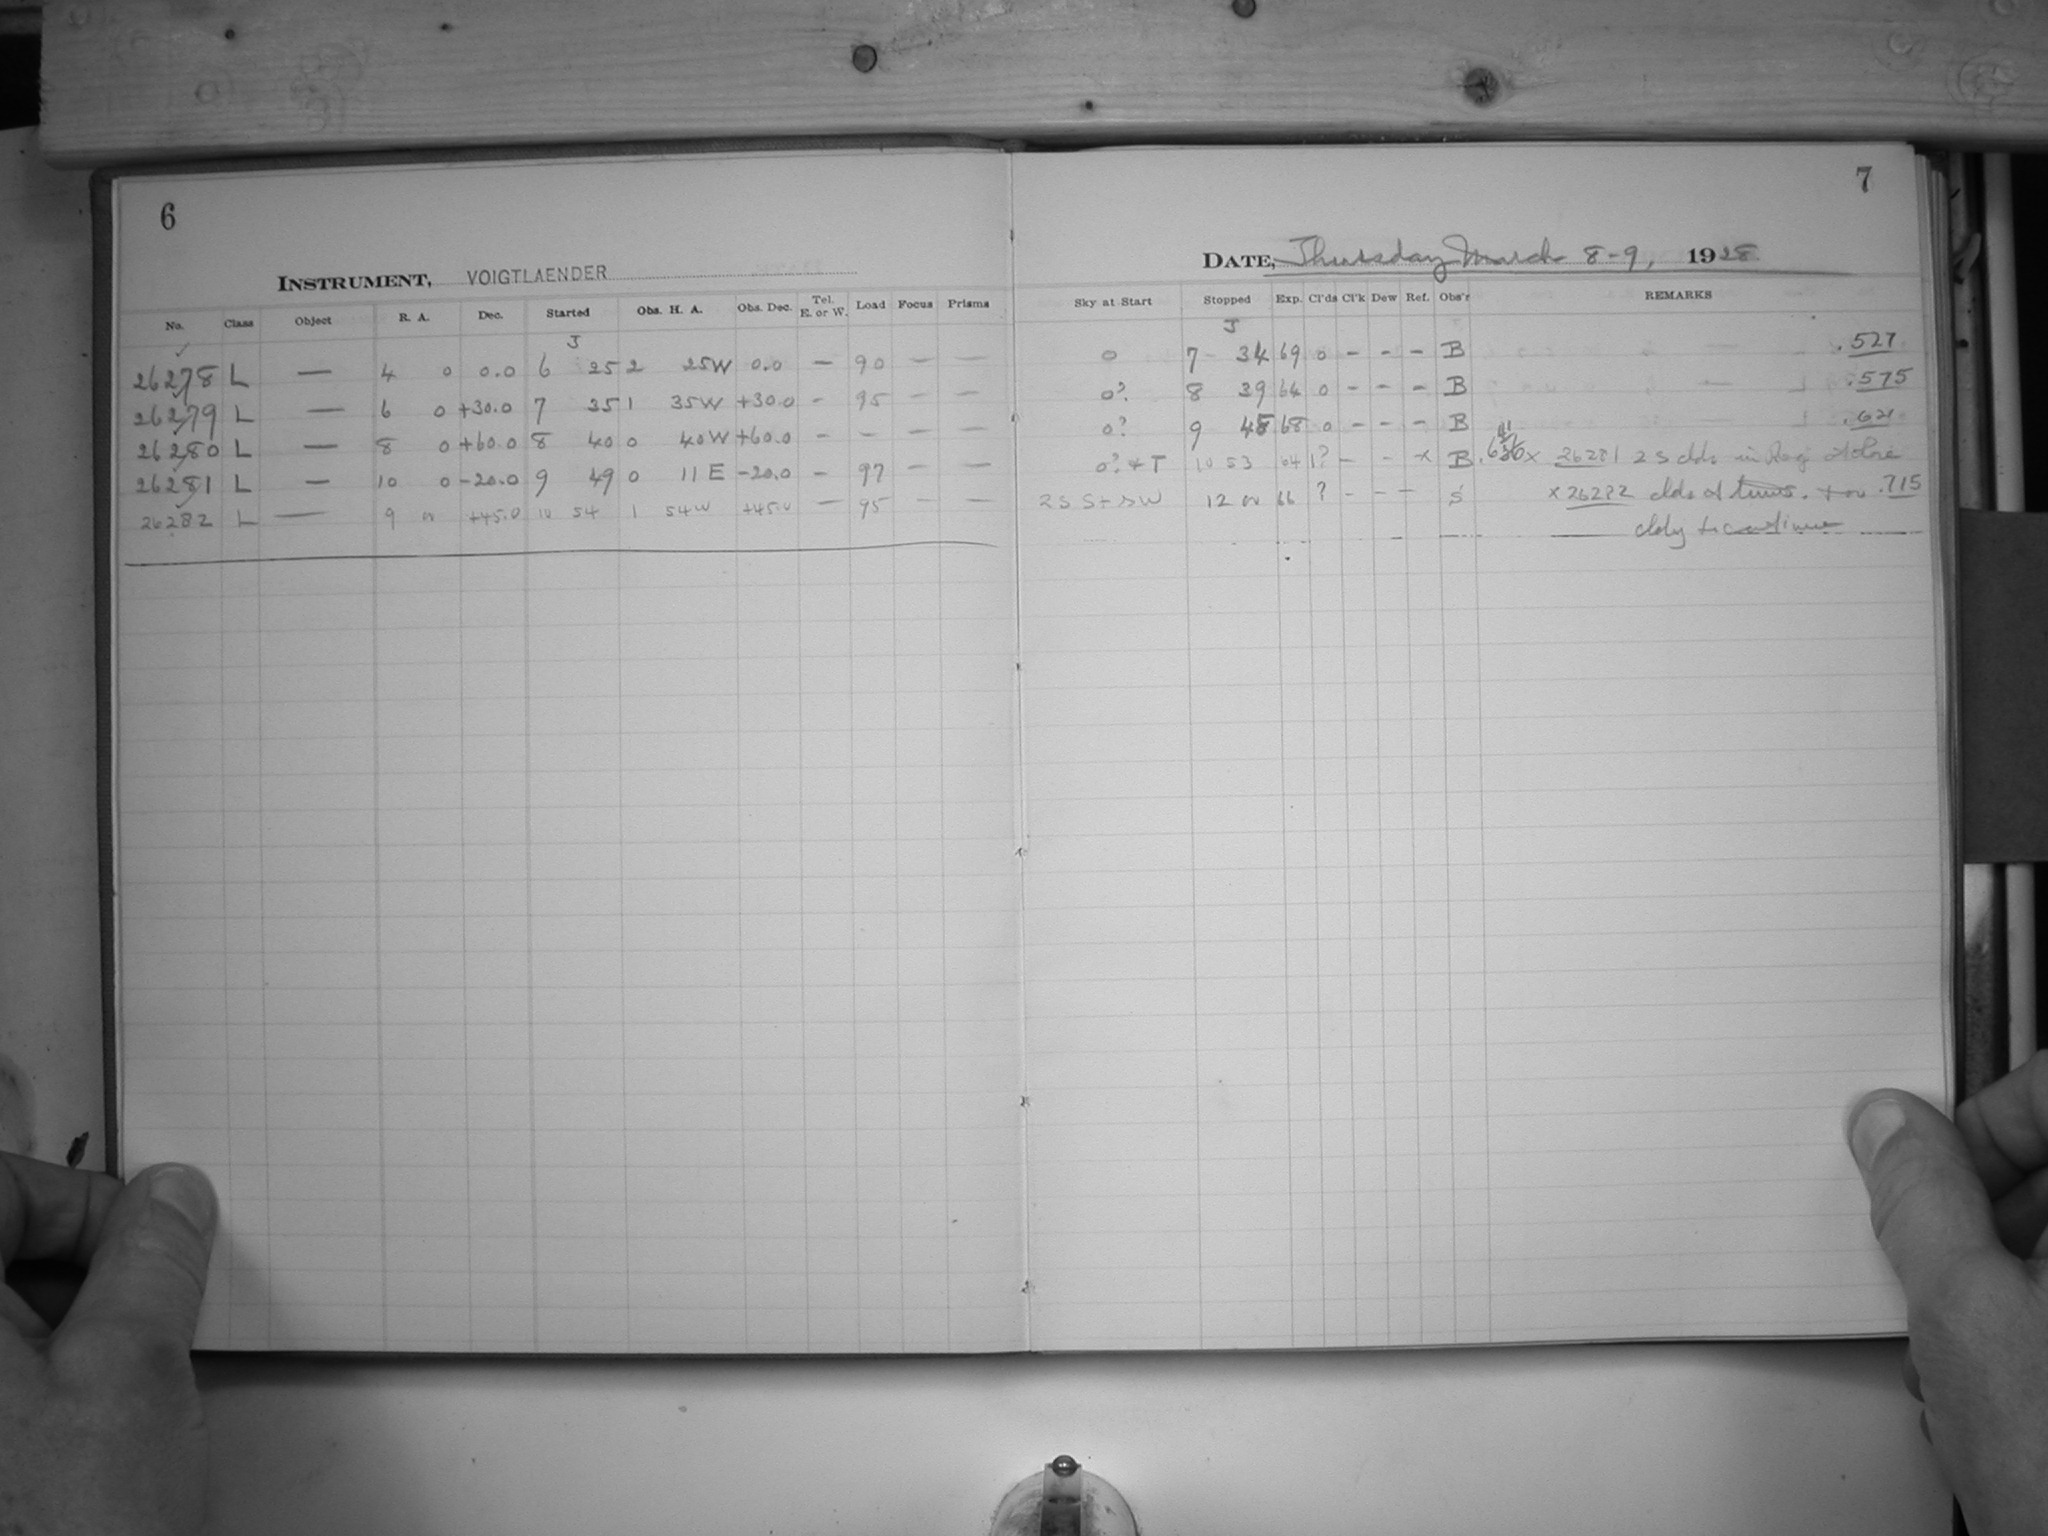 6
INSTRUMENT, VOIGTLAENDER
No. Class Object R. A. Dec. Started Obs. H. A. Obs. Dec. Tel. E. or W. Load Focus Prisms
J
26278 L — 4 0 0.0 6 25 2 25W 0.0 — 90 — —
26279 L — 6 0 +30.0 7 35 1 35W +30.0 - 95 — —
26280 L — 8 0 +60.0 8 40 0 40W +60.0 - - — —
26281 L — 10 0 -20.0 9 49 0 11 E -20.0 - 97 — —
26282 L — 9 0 +45.0 10 54 1 54W +45.0 — 95 — —
7
DATE, Thursday March 8-9, 1928
Sky at Start Stopped Exp. Cl'ds Cl'k Dew Ref. Obs'r REMARKS
J
0 7 34 69 0 - - - B .527
0? 8 39 64 0 - - - B .575
0? 9 48 68 0 - - - B .621
0? + T 10 53 64 1? - - x B x 26281 2 S clds in
2S S+SW 12 0 66 ? - - - S x 26282 clds at times. .715
cldy to continue